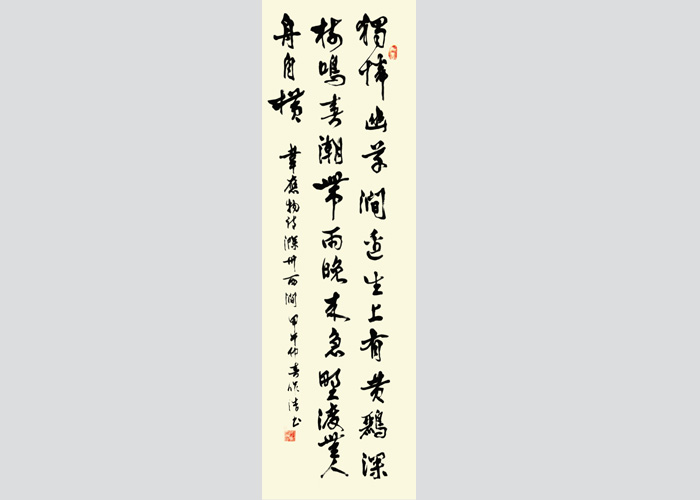 獨憐幽草澗邊生上有黄鸝深
樹鳴春潮帶雨晚来急野渡無人
舟自横
韋應物詩滁州西澗 甲午仲春